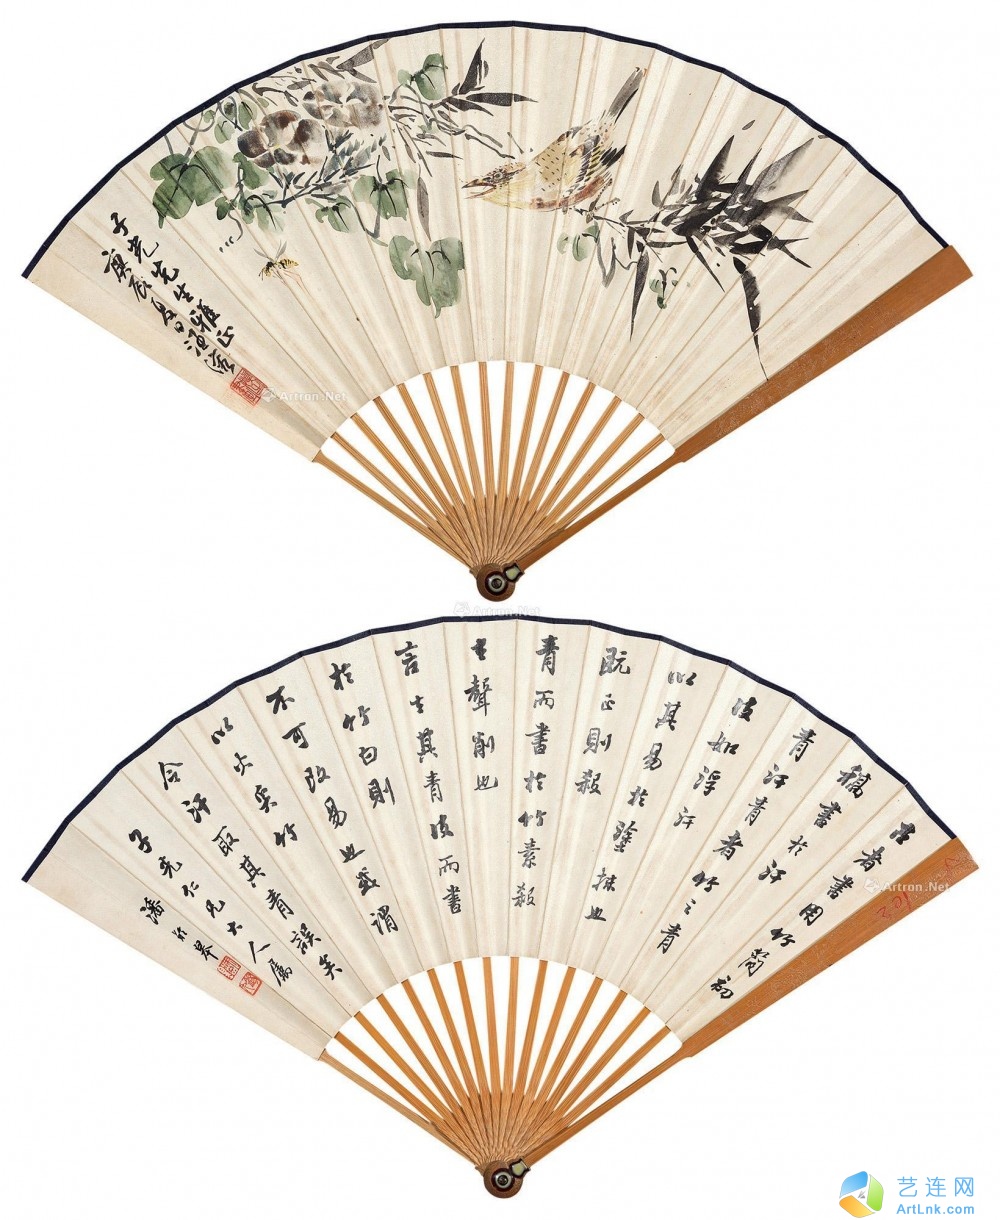 子光先生雅正
庚辰夏日汪溶
Artron.Net
Artron.Net
古者書用竹簡初
稿書於汗
青汗青者竹之青
皮如浮汗
以其易於塗抹也
既正則殺
青而書於竹素殺
去聲削也
言去其青皮而書
於竹白則
不可改易也或謂
以火炙竹
令汗取其青誤矣
子光仁兄大人屬
潘齡皋
Artron.Net
艺连网
ArtLnk.com